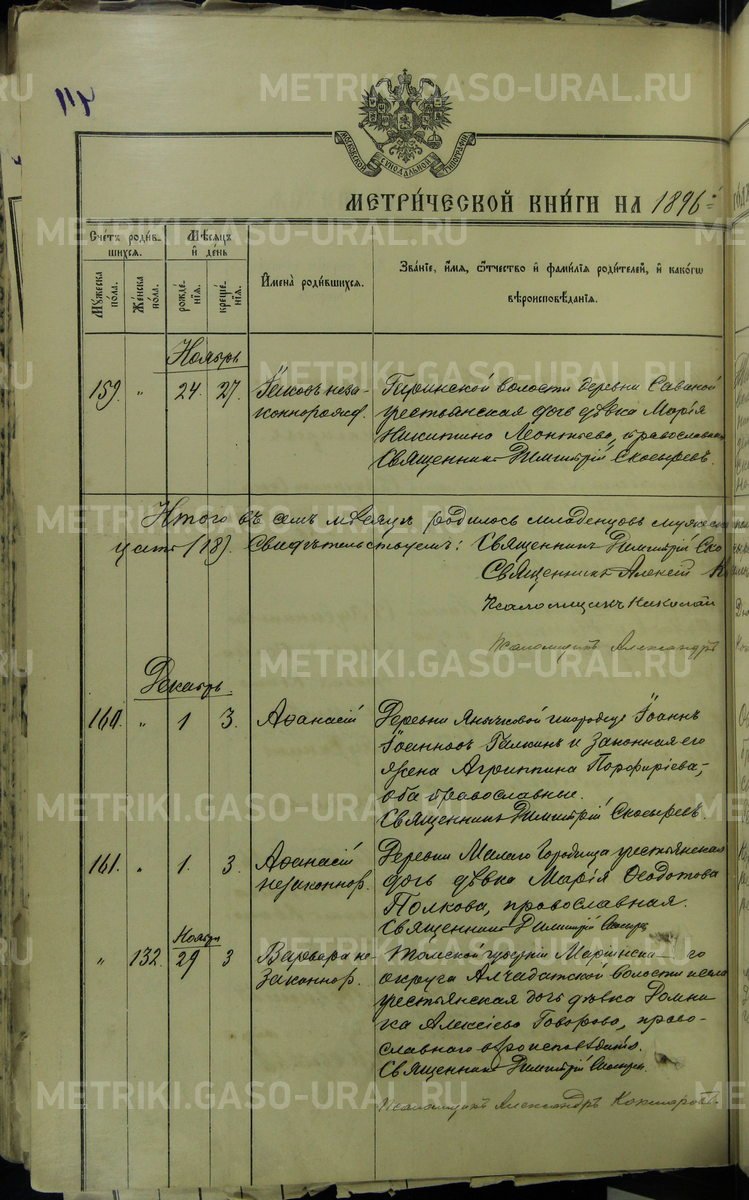 114
МОСКОВСКОЙ СѴНОДАЛЬНОЙ ТИПОГРАФІИ
МЕТРИ́ЧЕСКОЙ КНИ́ГИ НА 1896
Сче́тъ роди́в-
шихся.
Мѣ́сяцъ
и҆ де́нь
Му́жеска
по́ла.
Же́нска
по́ла.
рожде́-
нїѧ.
креще́-
нїѧ.
И҆мена̀ роди́вшихся.
Зва́нїе, и҆́мѧ, ѻ҆́тчество и҆ фами́лїѧ роди́телей, и҆ како́гѡ
вѣроисповѣ́данїѧ.
Ноябрь
159. " 24 27. Іаковъ неза-
коннорожд.
Гаринской волости деревни
крестьянская дочь дѣвка Марія
Никитина Леонтьева, православная
Священникъ Димитрій Скосыревъ.
Итого въ семъ мѣсяцѣ родилось младенцовъ
(18). Свидѣтельствуемъ: Священникъ Димитрій Ско
Священникъ Алексій
Псаломщикъ Николай
Псаломщикъ Александръ
Декабрь.
160. " 1 3. Аѳанасій
Деревни Языковой инородецъ Іоаннъ
Іоанновъ Галкинъ и законная его
жена Агриппина Порфиріева,
оба православные.
Священникъ Димитрій Скосыревъ.
161. " 1. 3. Аѳанасій
незаконнор.
Деревни Малаго Городища крестьянская
дочь дѣвка Марія Ѳеодотова
Полкова, православная.
Священникъ Димитрій Скосыр
Ноябрь
" 132. 29 3 Варвара не-
законнор.
Томской губерніи Маріинска го
округа Алчадатской волости и села
крестьянская дочь дѣвка Домни-
ка Алексіева Говорова, право-
славнаго вѣроисповѣданія.
Священникъ Димитрій Скосыр.
Псаломщикъ Александръ Кокшаровъ.
METRIKI.GASO-URAL.RU